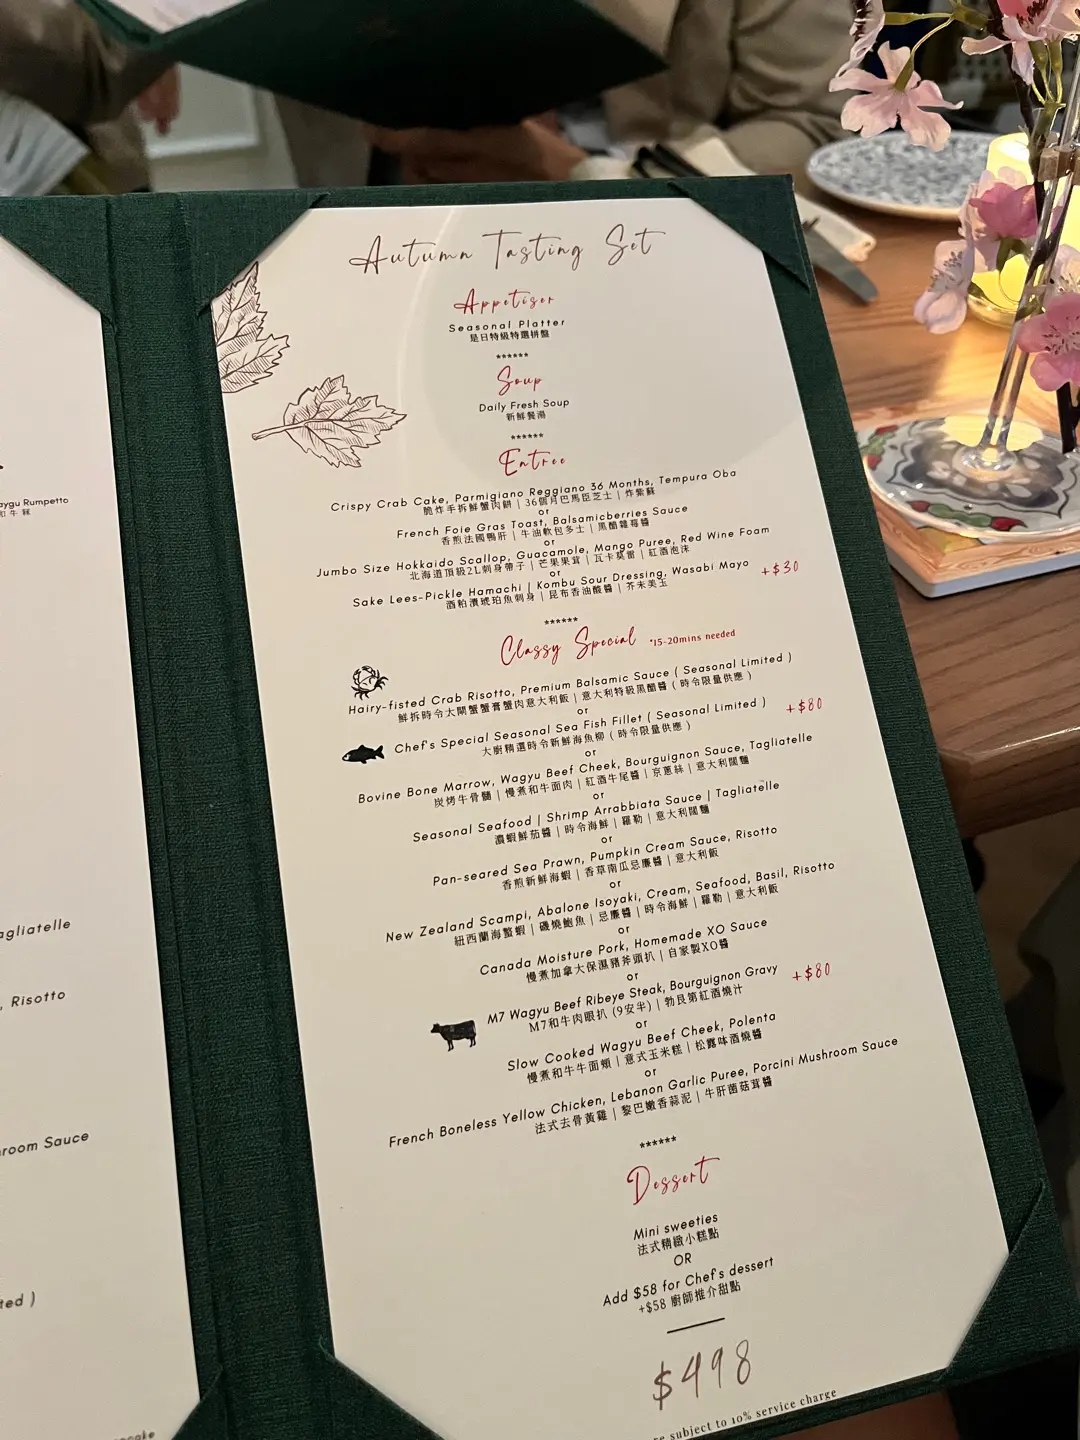 Autumn Tasting Set
Appetiser
Seasonal Platter
是日特級特選拼盤
******
Soup
Daily Fresh Soup
新鮮餐湯
******
Entree
Crispy Crab Cake, Parmigiano Reggiano 36 Months, Tempura Oba
脆炸手拆鮮蟹肉餅 | 36個月巴馬臣芝士 | 炸紫蘇
or
French Foie Gras Toast, Balsamicberries Sauce
香煎法國鴨肝 | 牛油軟包多士 | 黑醋雜莓醬
or
Jumbo Size Hokkaido Scallop, Guacamole, Mango Puree, Red Wine Foam
北海道頂級2L刺身帶子 | 芒果果茸 | 瓦卡莫雷 | 紅酒泡沫
or
Sake Lees-Pickle Hamachi | Kombu Sour Dressing, Wasabi Mayo +$30
酒粕漬琥珀魚刺身 | 昆布香油酸醬 | 芥末美玉
******
Classy Special *15-20mins needed
Hairy-fisted Crab Risotto, Premium Balsamic Sauce ( Seasonal Limited )
鮮拆時令大閘蟹蟹膏蟹肉意大利飯 | 意大利特級黑醋醬 ( 時令限量供應 )
or
Chef's Special Seasonal Sea Fish Fillet ( Seasonal Limited ) +$80
大廚精選時令新鮮海魚柳 ( 時令限量供應 )
or
Bovine Bone Marrow, Wagyu Beef Cheek, Bourguignon Sauce, Tagliatelle
炭烤牛骨髓 | 慢煮和牛面肉 | 紅酒牛尾醬 | 京蔥絲 | 意大利闊麵
or
Seasonal Seafood | Shrimp Arrabbiata Sauce | Tagliatelle
濃蝦鮮茄醬 | 時令海鮮 | 羅勒 | 意大利闊麵
or
Pan-seared Sea Prawn, Pumpkin Cream Sauce, Risotto
香煎新鮮海蝦 | 香草南瓜忌廉醬 | 意大利飯
or
New Zealand Scampi, Abalone Isoyaki, Cream, Seafood, Basil, Risotto
紐西蘭海螯蝦 | 磯燒鮑魚 | 忌廉醬 | 時令海鮮 | 羅勒 | 意大利飯
or
Canada Moisture Pork, Homemade XO Sauce
慢煮加拿大保濕豬斧頭扒 | 自家製XO醬
or
M7 Wagyu Beef Ribeye Steak, Bourguignon Gravy +$80
M7和牛肉眼扒 (9安半) | 勃艮第紅酒燒汁
or
Slow Cooked Wagyu Beef Cheek, Polenta
慢煮和牛牛面頰 | 意式玉米糕 | 松露味酒燒醬
or
French Boneless Yellow Chicken, Lebanon Garlic Puree, Porcini Mushroom Sauce
法式去骨黃雞 | 黎巴嫩香蒜泥 | 牛肝菌菇茸醬
******
Dessert
Mini sweeties
法式精緻小糕點
OR
Add $58 for Chef's dessert
+$58 廚師推介甜點
$498
subject to 10% service charge
Rumpetto
和牛
Risotto
Sauce